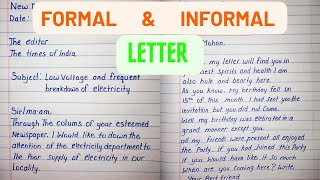 FORMAL & INFORMAL
LETTER
New
Date:
The editor
The Times of India
Subject: Low Voltage and frequent
breakdown of electricity
Sir/ma'am.
Through the colums of your esteemed
Newspaper. I would like to down the
attention of the electricity department to
the Poor supply of electricity in our
Locality.
Mohan.
my letter will find you in
best spirits and health I am
also hole and hearty here.
As you know. My birthday fell on
15th of this month. I had sent you the
invitation but you did not Come.
Well my birthday was celebrated in a
grand manner except you.
all my friends were present all enjoyed
the Party. If you had joined this Party
I would have liked it so much
when are you coming here? Write
Your Best friend